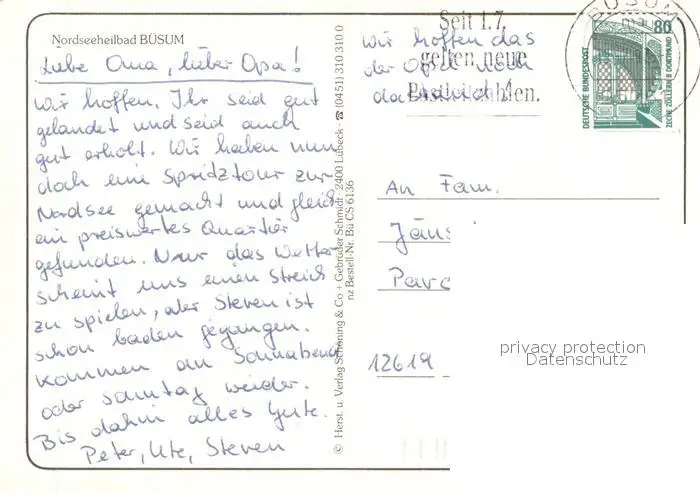 Nordseeheilbad BÜSUM
Liebe Oma, lieber Opa!
Wir hoffen, Ihr seid gut
gelandet und seid auch
gut erholt. Wir haben nun
doch eine Spritztour zur
Nordsee gemacht und gleich
ein preiswertes Quartier
gefunden. Nur das Wetter
scheint uns einen Streich
zu spielen, aber Steven ist
schon baden gegangen.
Kommen am Sonnabend
oder Sonntag wieder.
Bis dahin alles Gute.
Peter, Ute, Steven
© Herst. u. Verlag Schöning & Co + Gebrüder Schmidt · 2400 Lübeck · ☎ (0451) 310 310 0
nz Bestell-Nr. Bü CS 6136
Wir hoffen das
der Opa noch
da
Seit 1.7.
gelten neue
Postleitzahlen.
BÜSUM
80
DEUTSCHE BUNDESPOST
ZECHE ZOLLERN II DORTMUND
An Fam.
Jäns
Para
12619
privacy protection
Datenschutz